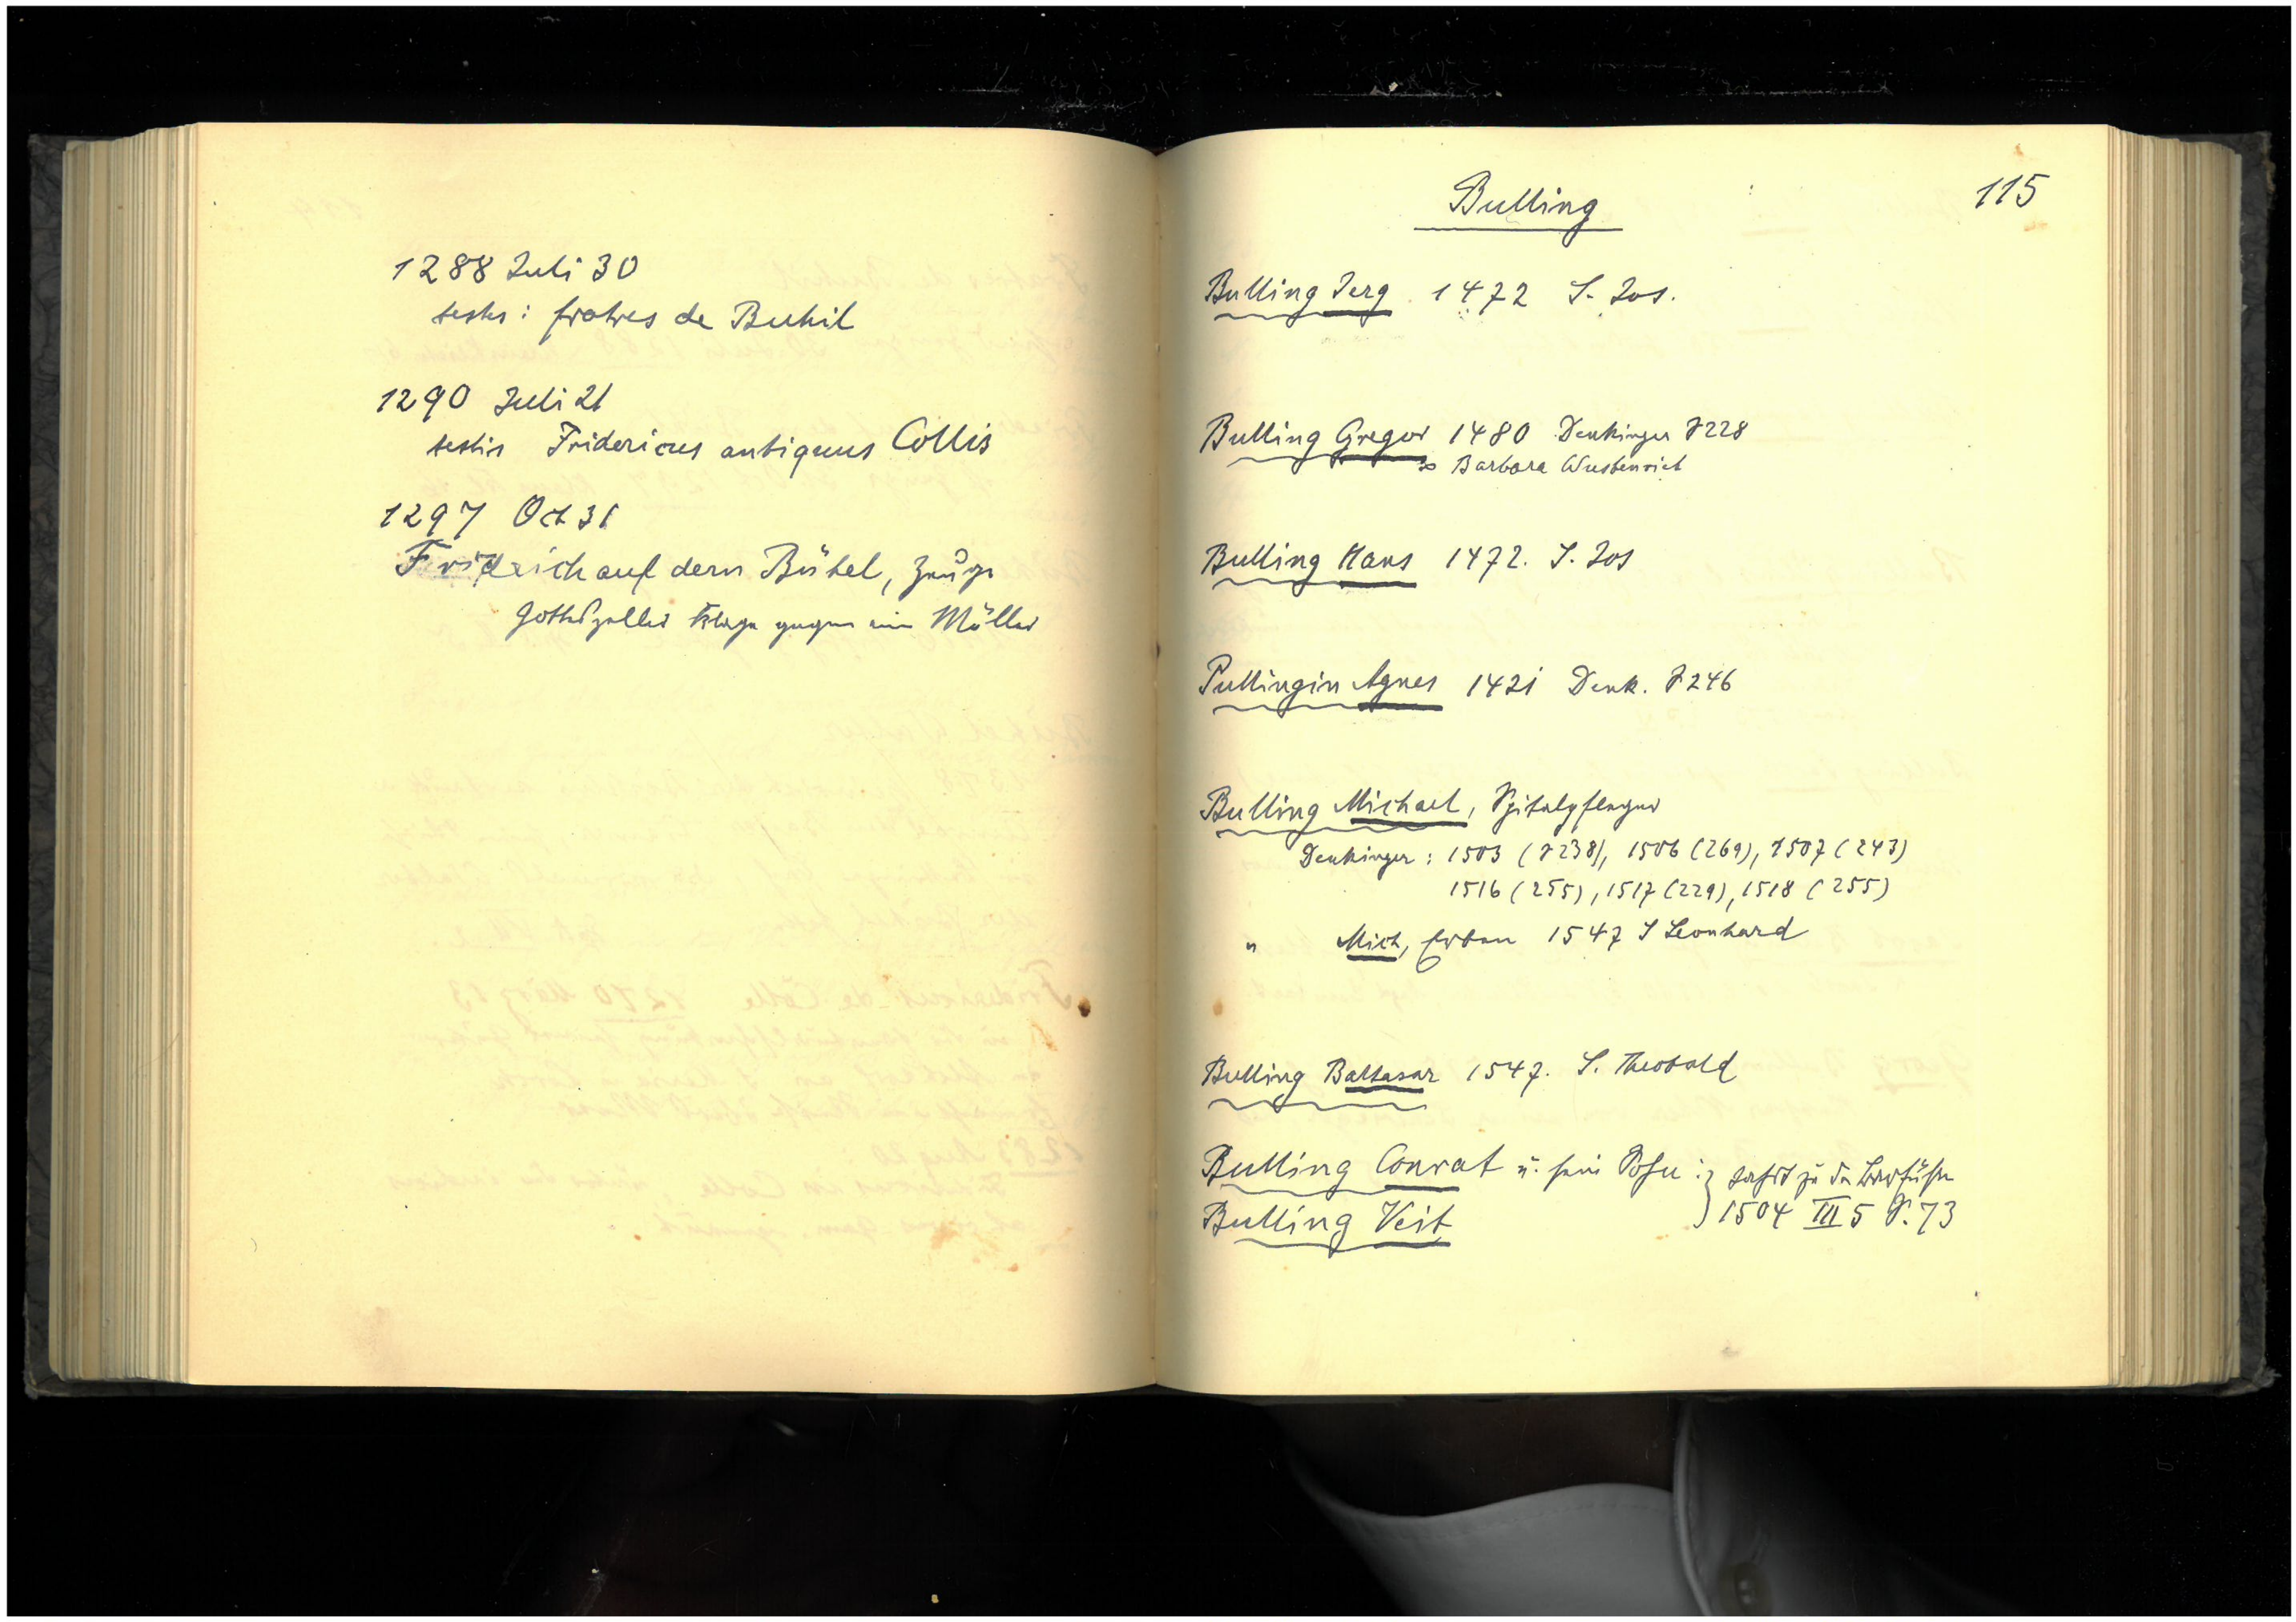 1288 Juli 30
testes: fratres de Buhil
1290 Juli 21
testis Fridericus antiquus Collis
1297 Oct 31
Fridrich auf dem Bühel, Zeuge
Gotteszeller Klage gegen ein Müller
Bulling
115
Bulling Jerg 1472 S. Jos.
Bulling Gregor 1480 Denkinger S 228
∞ Barbara Wustenriet
Bulling Hans 1472. S. Jos
Pullingin Agnes 1421 Denk. S 246
Bulling Michael, Spitalpfleger
Denkinger: 1503 (S 238), 1506 (269), 1507 (243)
1516 (255), 1517 (229), 1518 (255)
" Mich, Erben 1547 S Leonhard
Bulling Baltasar 1547. S. Theobald
Bulling Conrat u. sein Sohn : } Jahrt zu den Barfüßern
Bulling Veit } 1504 III 5 S. 73